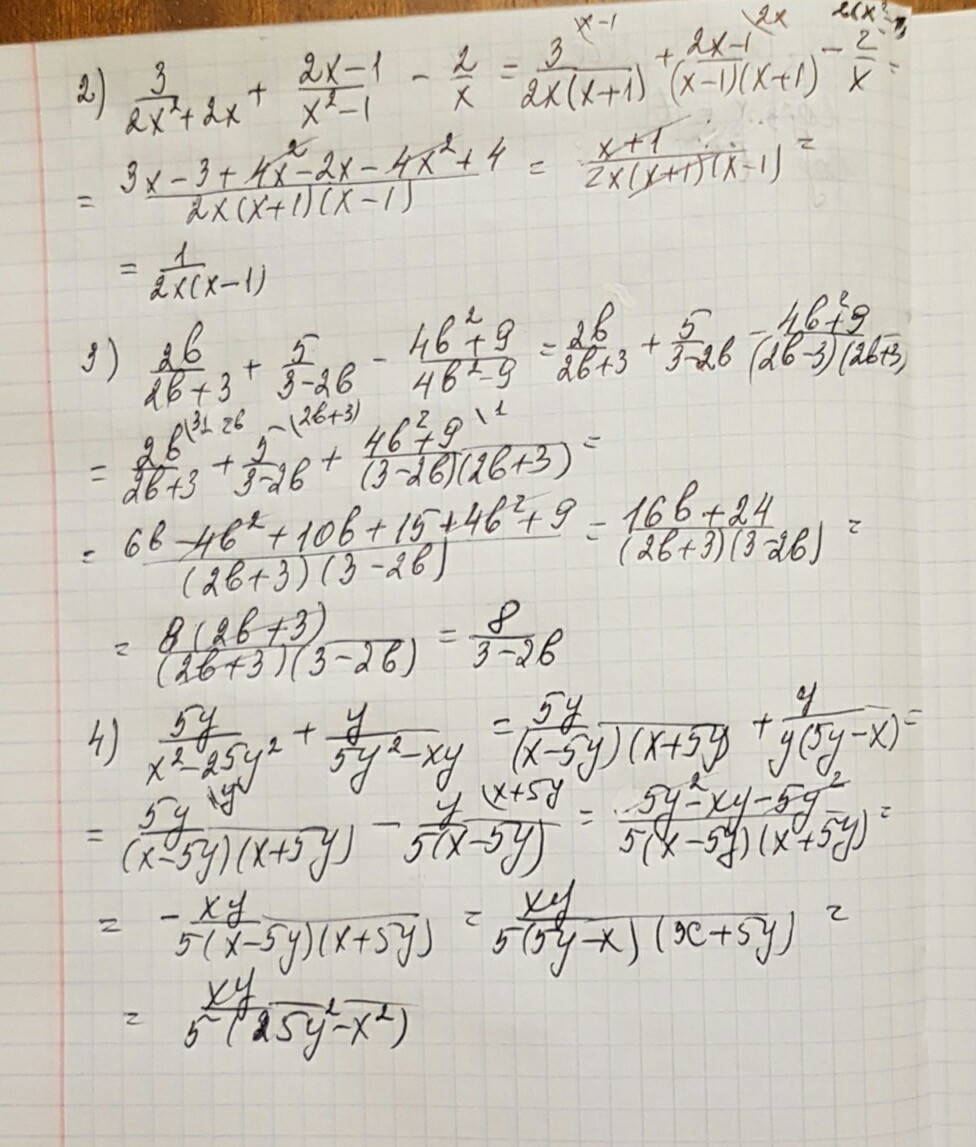 2) 3/(2x²+2x) + (2x-1)/(x²-1) - 2/x = 3\x-1/(2x(x+1)) + (2x-1)\2x/((x-1)(x+1)) - 2/x =
= (3x-3+4x²-2x-4x²+4)/(2x(x+1)(x-1)) = (x+1)/(2x(x+1)(x-1)) =
= 1/(2x(x-1))
3) 2b/(2b+3) + 5/(3-2b) - (4b²+9)/(4b²-9) = 2b/(2b+3) + 5/(3-2b) - (4b²+9)/((2b-3)(2b+3)
= 2b\3-2b/(2b+3) + 5\(2b+3)/(3-2b) + (4b²+9)\1/((3-2b)(2b+3)) =
= (6b-4b²+10b+15+4b²+9)/((2b+3)(3-2b)) = (16b+24)/((2b+3)(3-2b)) =
= 8(2b+3)/((2b+3)(3-2b)) = 8/(3-2b)
4) 5y/(x²-25y²) + y/(5y²-xy) = 5y/((x-5y)(x+5y)) + y/(y(5y-x)) =
= 5y\y/((x-5y)(x+5y)) - y\x+5y/(5(x-5y)) = (5y²-xy-5y²)/(5(x-5y)(x+5y)) =
= - xy/(5(x-5y)(x+5y)) = xy/(5(5y-x)(x+5y)) =
= xy/(5(25y²-x²))